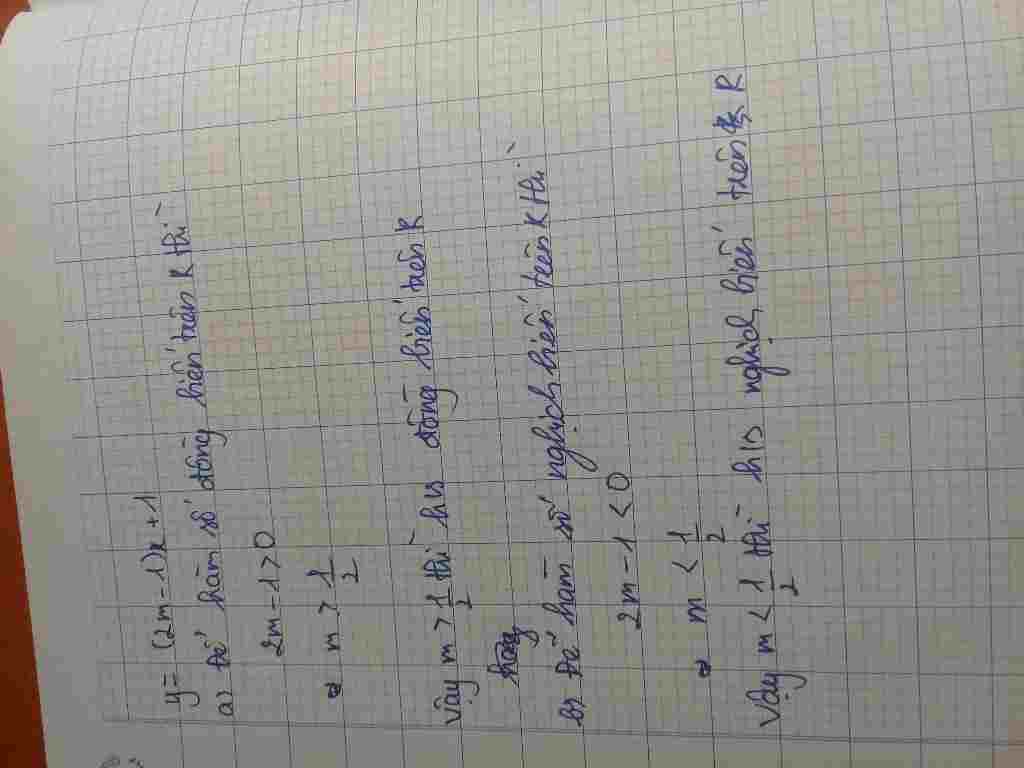 y = (2m - 1)x + 1
a) Để hàm số đồng biến trên R thì
2m - 1 > 0
m > 1/2
Vậy m > 1/2 thì h/s đồng biến trên R
Để hàm số nghịch biến trên R thì
2m - 1 < 0
m < 1/2
Vậy m < 1/2 thì h/s nghịch biến trên R